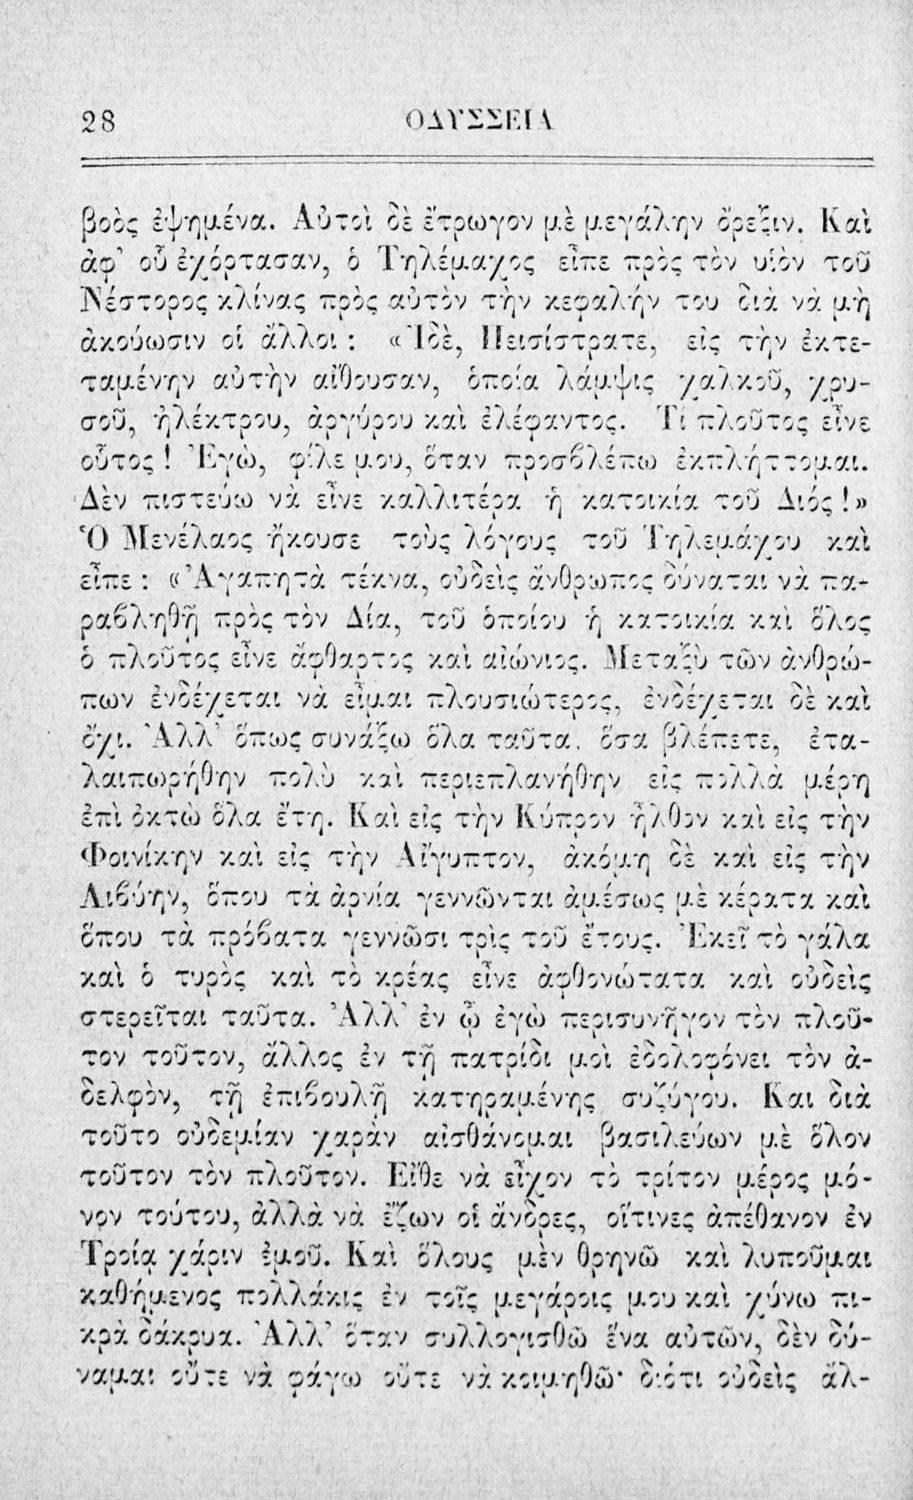 28 ΟΔΥΣΣΕΙΑ
βοὸς ἐψημένα. Αὐτοὶ δὲ ἔτρωγον μὲ μεγάλην ὄρεξιν. Καὶ
ἀφ' οὗ ἐχόρτασαν, ὁ Τηλέμαχος εἶπε πρὸς τὸν υἱὸν τοῦ
Νέστορος κλίνας πρὸς αὐτὸν τὴν κεφαλήν του διὰ νὰ μὴ
ἀκούωσιν οἱ ἄλλοι : «Ἰδὲ, Πεισίστρατε, εἰς τὴν ἐκτε-
ταμένην αὐτὴν αἴθουσαν, ὁποία λάμψις χαλκοῦ, χρυ-
σοῦ, ἠλέκτρου, ἀργύρου καὶ ἐλέφαντος. Τί πλοῦτος εἶνε
οὗτος! Ἐγὼ, φίλε μου, ὅταν προσβλέπω ἐκπλήττομαι.
Δὲν πιστεύω νὰ εἶνε καλλιτέρα ἡ κατοικία τοῦ Διός!»
Ὁ Μενέλαος ἤκουσε τοὺς λόγους τοῦ Τηλεμάχου καὶ
εἶπε : «Ἀγαπητὰ τέκνα, οὐδεὶς ἄνθρωπος δύναται νὰ πα-
ραβληθῇ πρὸς τὸν Δία, τοῦ ὁποίου ἡ κατοικία καὶ ὅλος
ὁ πλοῦτος εἶνε ἄφθαρτος καὶ αἰώνιος. Μεταξὺ τῶν ἀνθρώ-
πων ἐνδέχεται νὰ εἶμαι πλουσιώτερος, ἐνδέχεται δὲ καὶ
ὄχι. Ἀλλ' ὅπως συνάξω ὅλα ταῦτα, ὅσα βλέπετε, ἐτα-
λαιπωρήθην πολὺ καὶ περιεπλανήθην εἰς πολλὰ μέρη
ἐπὶ ὀκτὼ ὅλα ἔτη. Καὶ εἰς τὴν Κύπρον ἦλθον καὶ εἰς τὴν
Φοινίκην καὶ εἰς τὴν Αἴγυπτον, ἀκόμη δὲ καὶ εἰς τὴν
Λιβύην, ὅπου τὰ ἀρνία γεννῶνται ἀμέσως μὲ κέρατα καὶ
ὅπου τὰ πρόβατα γεννῶσι τρὶς τοῦ ἔτους. Ἐκεῖ τὸ γάλα
καὶ ὁ τυρὸς καὶ τὸ κρέας εἶνε ἀφθονώτατα καὶ οὐδεὶς
στερεῖται ταῦτα. Ἀλλ' ἐν ᾧ ἐγὼ περισυνῆγον τὸν πλοῦ-
τον τοῦτον, ἄλλος ἐν τῇ πατρίδι μοὶ ἐδολοφόνει τὸν ἀ-
δελφὸν, τῇ ἐπιβουλῇ κατηραμένης συζύγου. Και διὰ
τοῦτο οὐδεμίαν χαρὰν αἰσθάνομαι βασιλεύων μὲ ὅλον
τοῦτον τὸν πλοῦτον. Εἴθε νὰ εἶχον τὸ τρίτον μέρος μό-
νον τούτου, ἀλλὰ νὰ ἔζων οἱ ἄνδρες, οἵτινες ἀπέθανον ἐν
Τροίᾳ χάριν ἐμοῦ. Καὶ ὅλους μὲν θρηνῶ καὶ λυποῦμαι
καθήμενος πολλάκις ἐν τοῖς μεγάροις μου καὶ χύνω πι-
κρὰ δάκρυα. Ἀλλ' ὅταν συλλογισθῶ ἕνα αὐτῶν, δὲν δύ-
ναμαι οὔτε νὰ φάγω οὔτε νὰ κοιμηθῶ· διότι οὐδεὶς ἄλ-